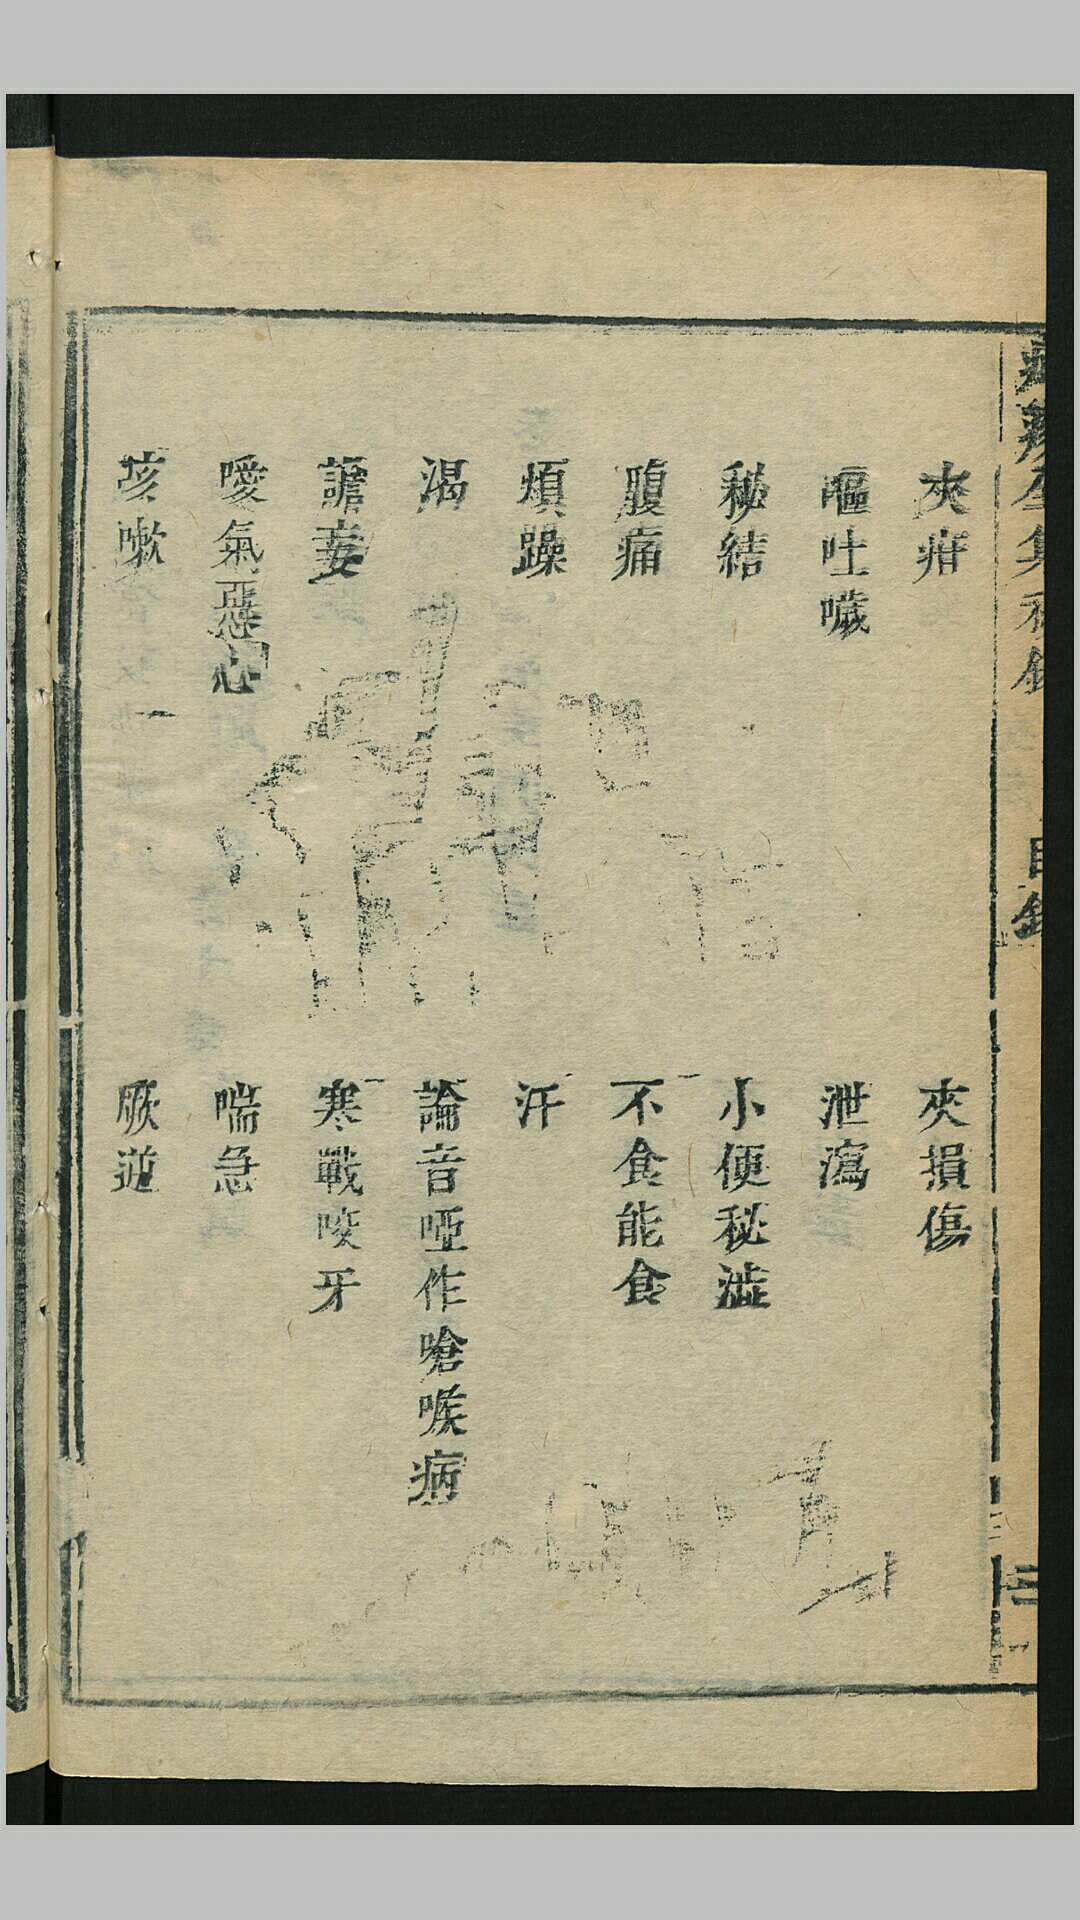 夾疳
夾損傷
嘔吐噦
泄瀉
秘結
小便秘澁
腹痛
不食能食
煩躁
汗
渴
論音啞作嗆喉病
譫妄
寒戰咬牙
噯氣惡心
喘急
咳嗽
厥逆
目錄